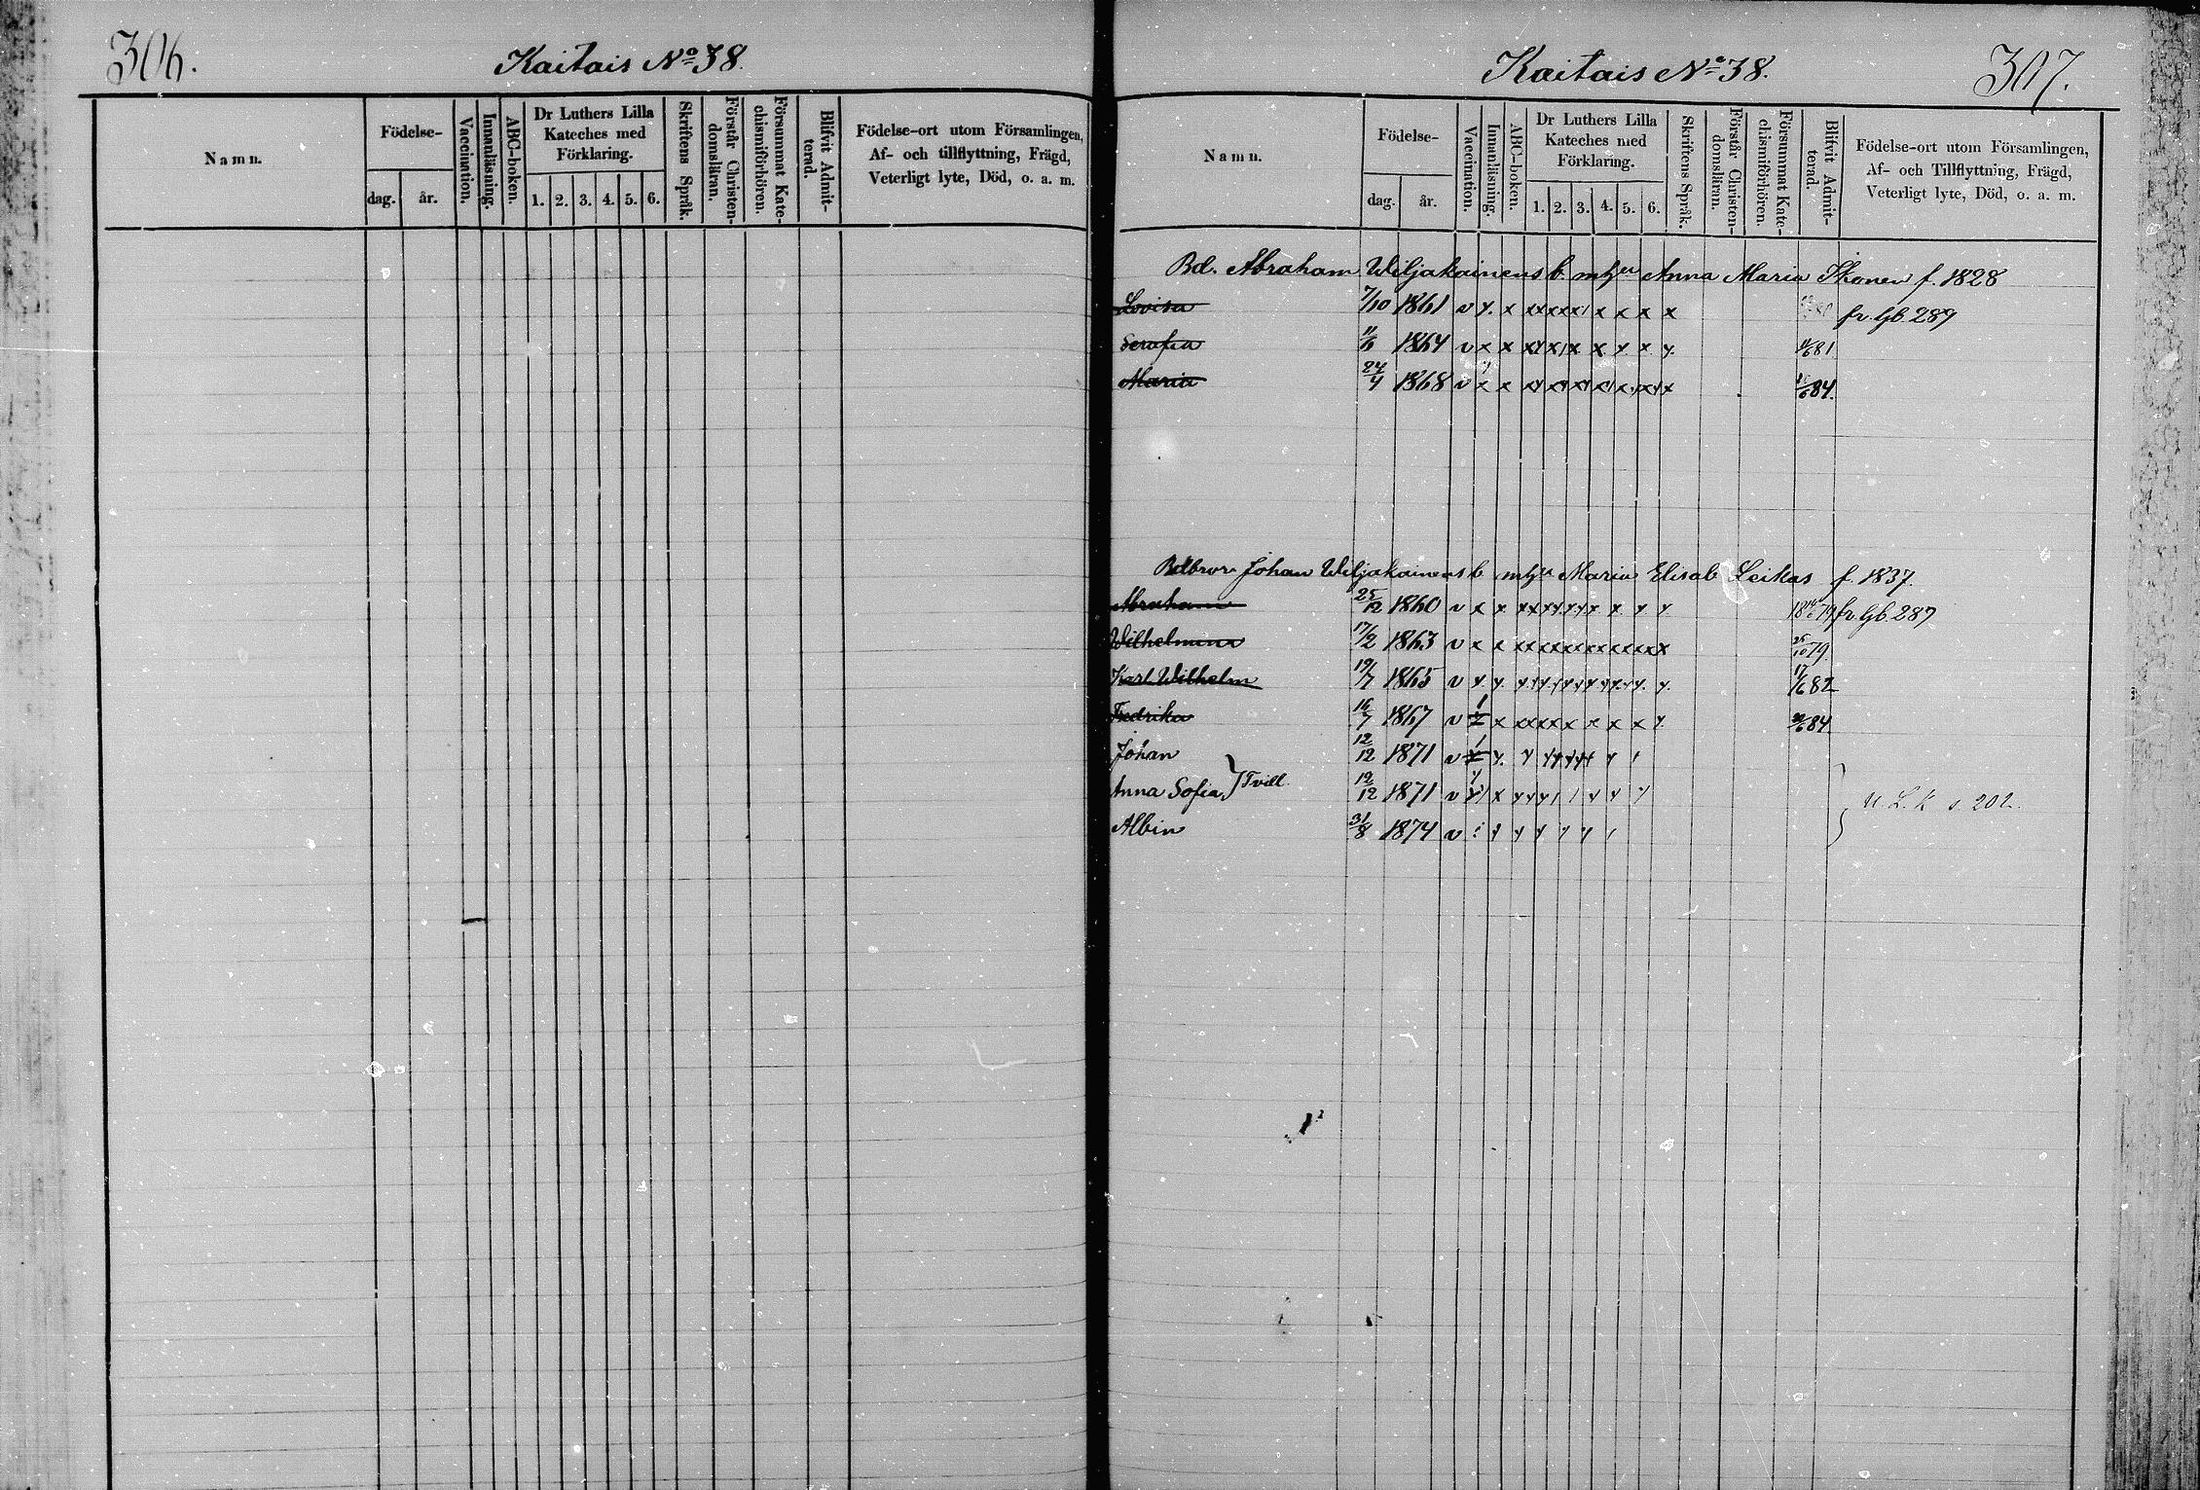 306.
Kaitais No 38.
Namn.
Födelse-
dag.
år.
Vaccination.
Innanläsning.
ABC-boken.
Dr Luthers Lilla
Kateches med
Förklaring.
1. 2. 3. 4. 5. 6.
Skriftens Språk.
Förstår Christen-
domsläran.
Försummat Kate-
chismiförhören.
Blifvit Admit-
terad.
Födelse-ort utom Församlingen,
Af- och tillflyttning, Frägd,
Veterligt lyte, Död, o. a. m.
Kaitais No 38.
307.
Namn.
Födelse-
dag.
år.
Vaccination.
Innanläsning.
ABC-boken.
Dr Luthers Lilla
Kateches med
Förklaring.
1. 2. 3. 4. 5. 6.
Skriftens Språk.
Förstår Christen-
domsläran.
Försummat Kate-
chismiförhören.
Blifvit Admit-
terad.
Födelse-ort utom Församlingen,
Af- och Tillflyttning, Frägd,
Veterligt lyte, Död, o. a. m.
Bd. Abraham Wiljakainens b. m hu Anna Maria Ikonen f. 1828
Lovisa 7/10 1861 v fr. Gb. 289
Serafia 1864 v 81
Maria 24/4 1868 v 84.
Bdbror Johan Wiljakainens b m hu Maria Elisab Leikas f. 1837.
Abraham 25/12 1860 v 79 fr. Gb. 287
Wilhelmina 17/2 1863 v 25/10 79.
Karl Wilhelm 19/7 1865 v 82
Fredrika 16/7 1867 v 84
Johan 12/12 1871 v
Anna Sofia } Tvill. 12/12 1871 v
N. L. k s. 202.
Albin 31/8 1874 v